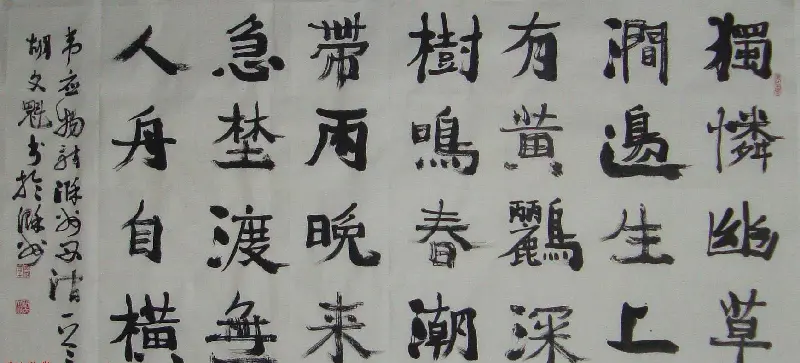 獨憐幽草
澗邊生上
有黃鸝深
樹鳴春潮
帶雨晚来
急埜渡無
人舟自橫
韦应物詩滁州西澗一首
胡文魁书於滁州